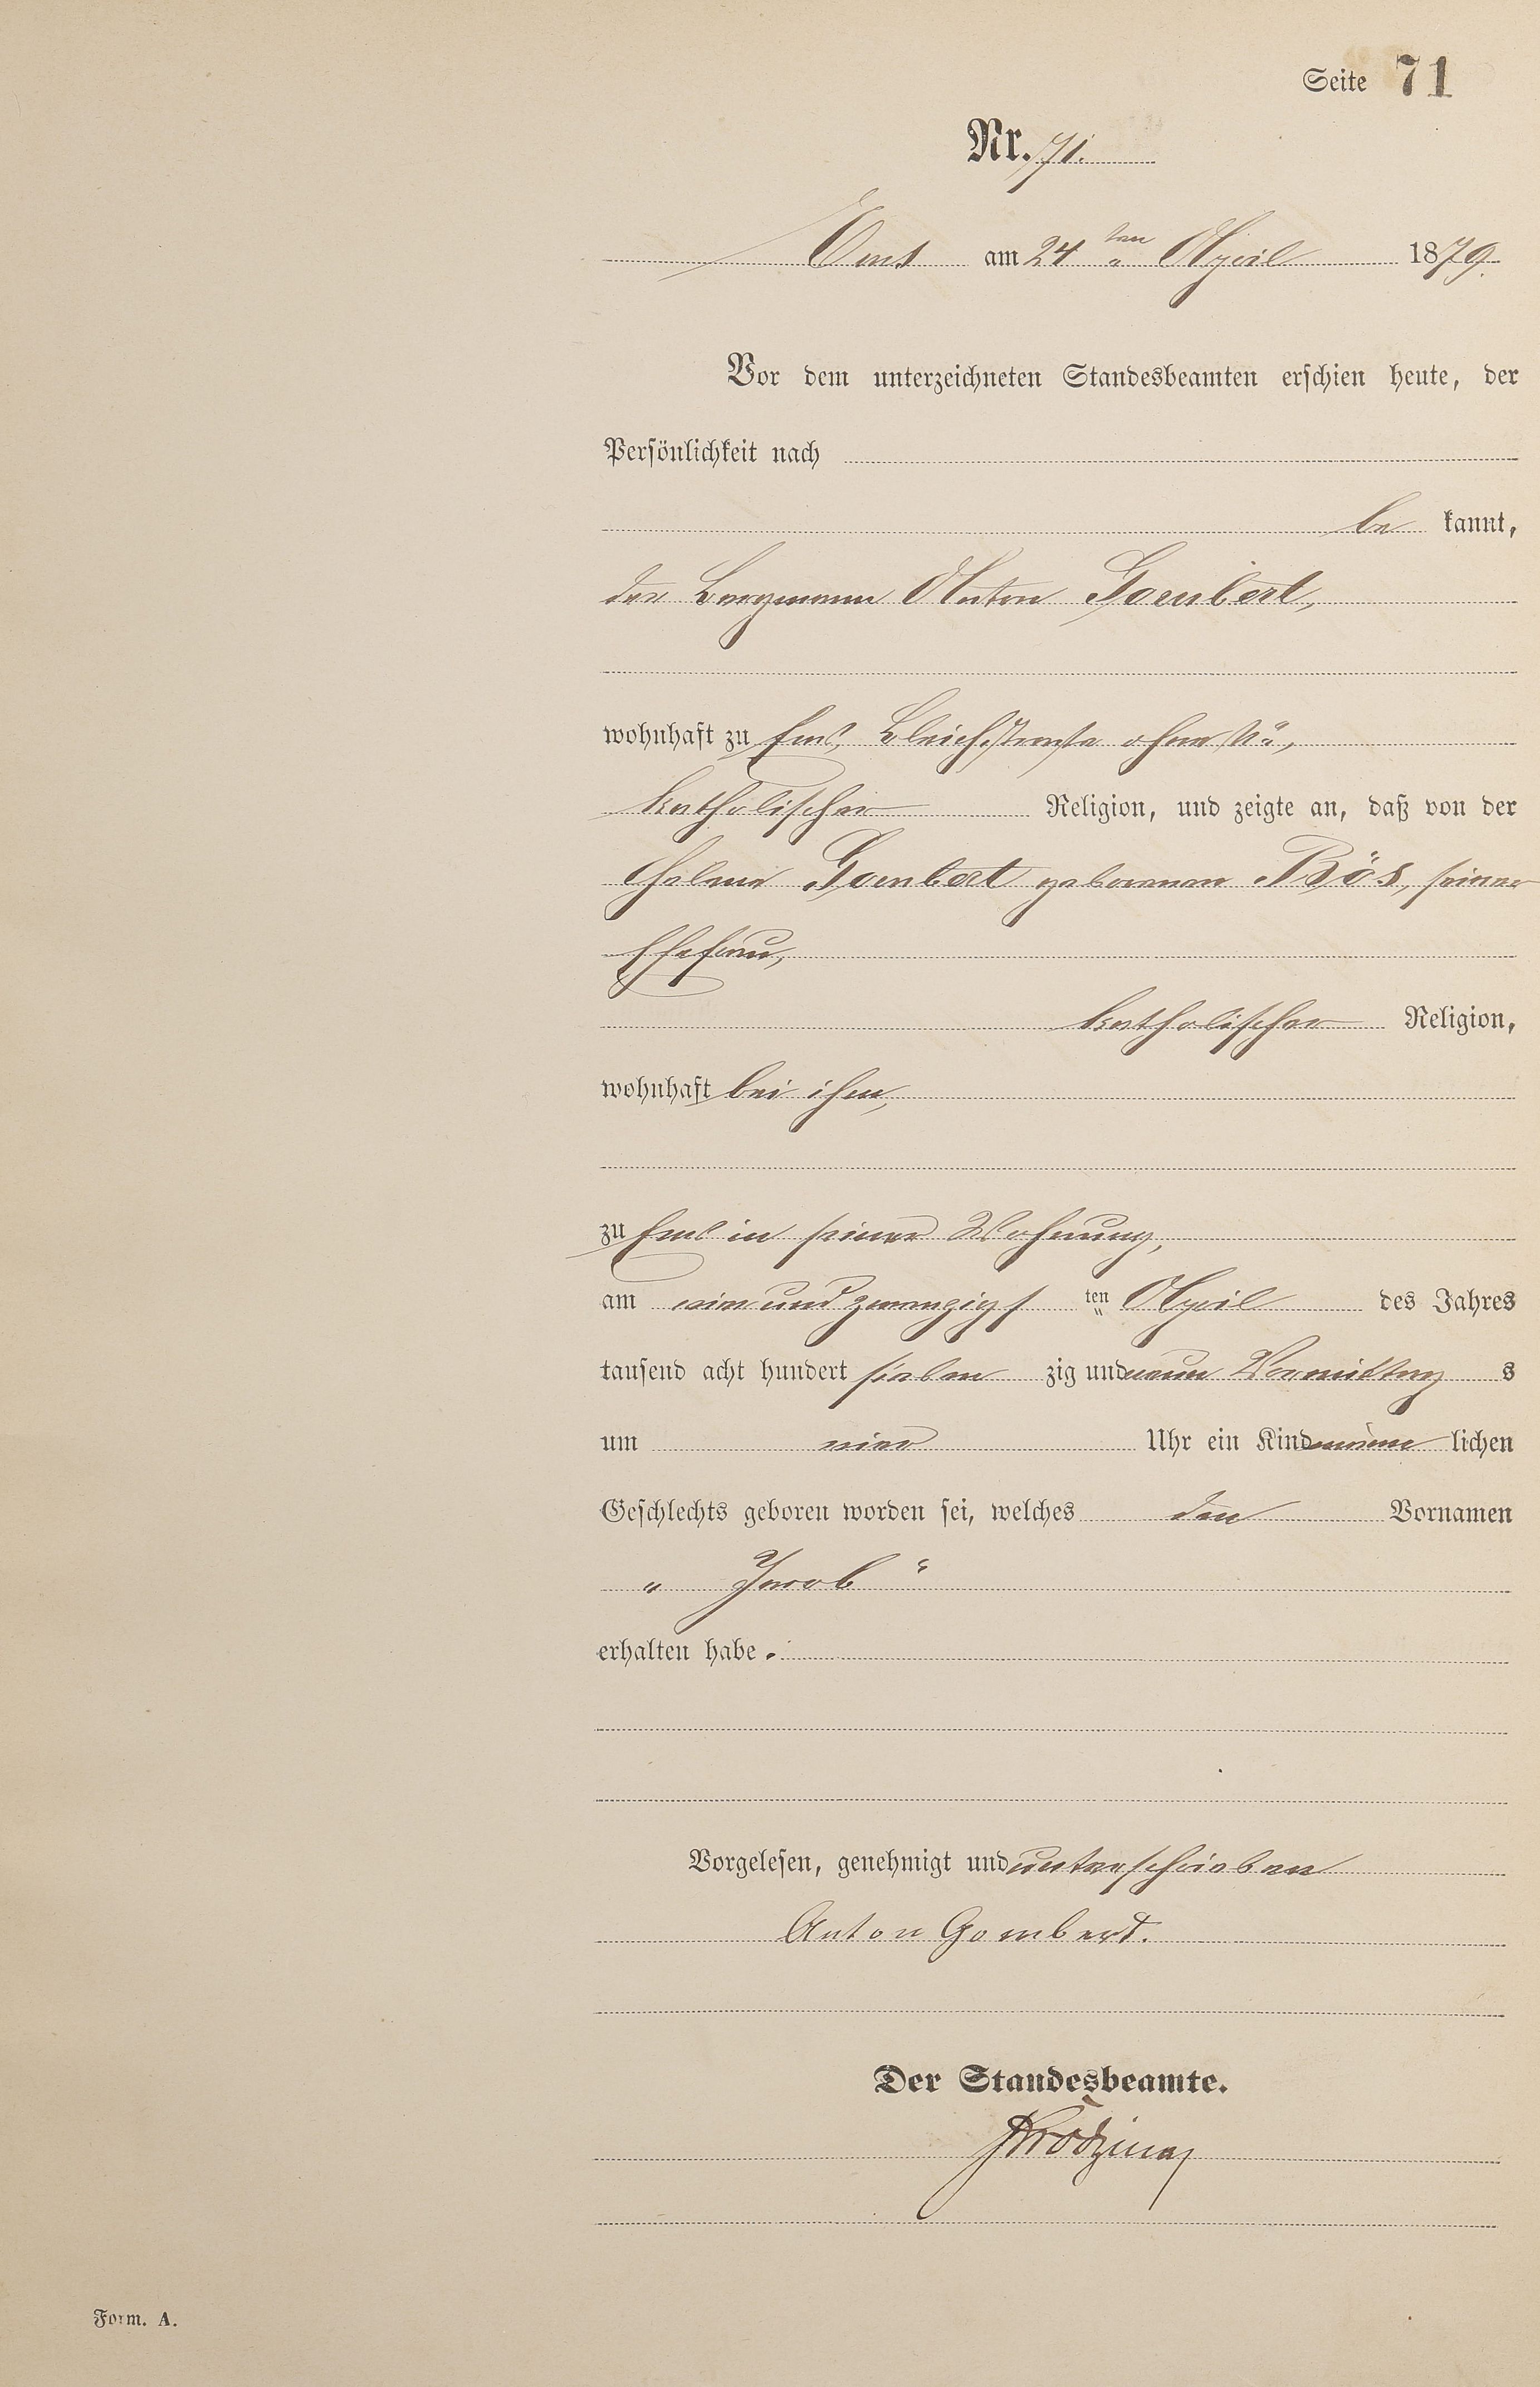 Seite 71
Nr. 71.
Ems am 24 ten April 1879.
Vor dem unterzeichneten Standesbeamten erschien heute, der
Persönlichkeit nach
be kannt,
der Bergmann Anton Gombert,
wohnhaft zu Ems, Bleichstraße ohne No,
katholischer Religion, und zeigte an, daß von der
Gombert geborenen Bös, seiner
Ehefrau,
katholischer Religion,
wohnhaft bei ihm,
zu Ems in seiner Wohnung,
am ein und zwanzigs ten April des Jahres
tausend acht hundert sieben zig und neun Vormittag s
um vier Uhr ein Kind männ lichen
Geschlechts geboren worden sei, welches den Vornamen
„ Jacob “
erhalten habe.
Vorgelesen, genehmigt und unterschrieben
Anton Gombert.
Der Standesbeamte.
Form. A.